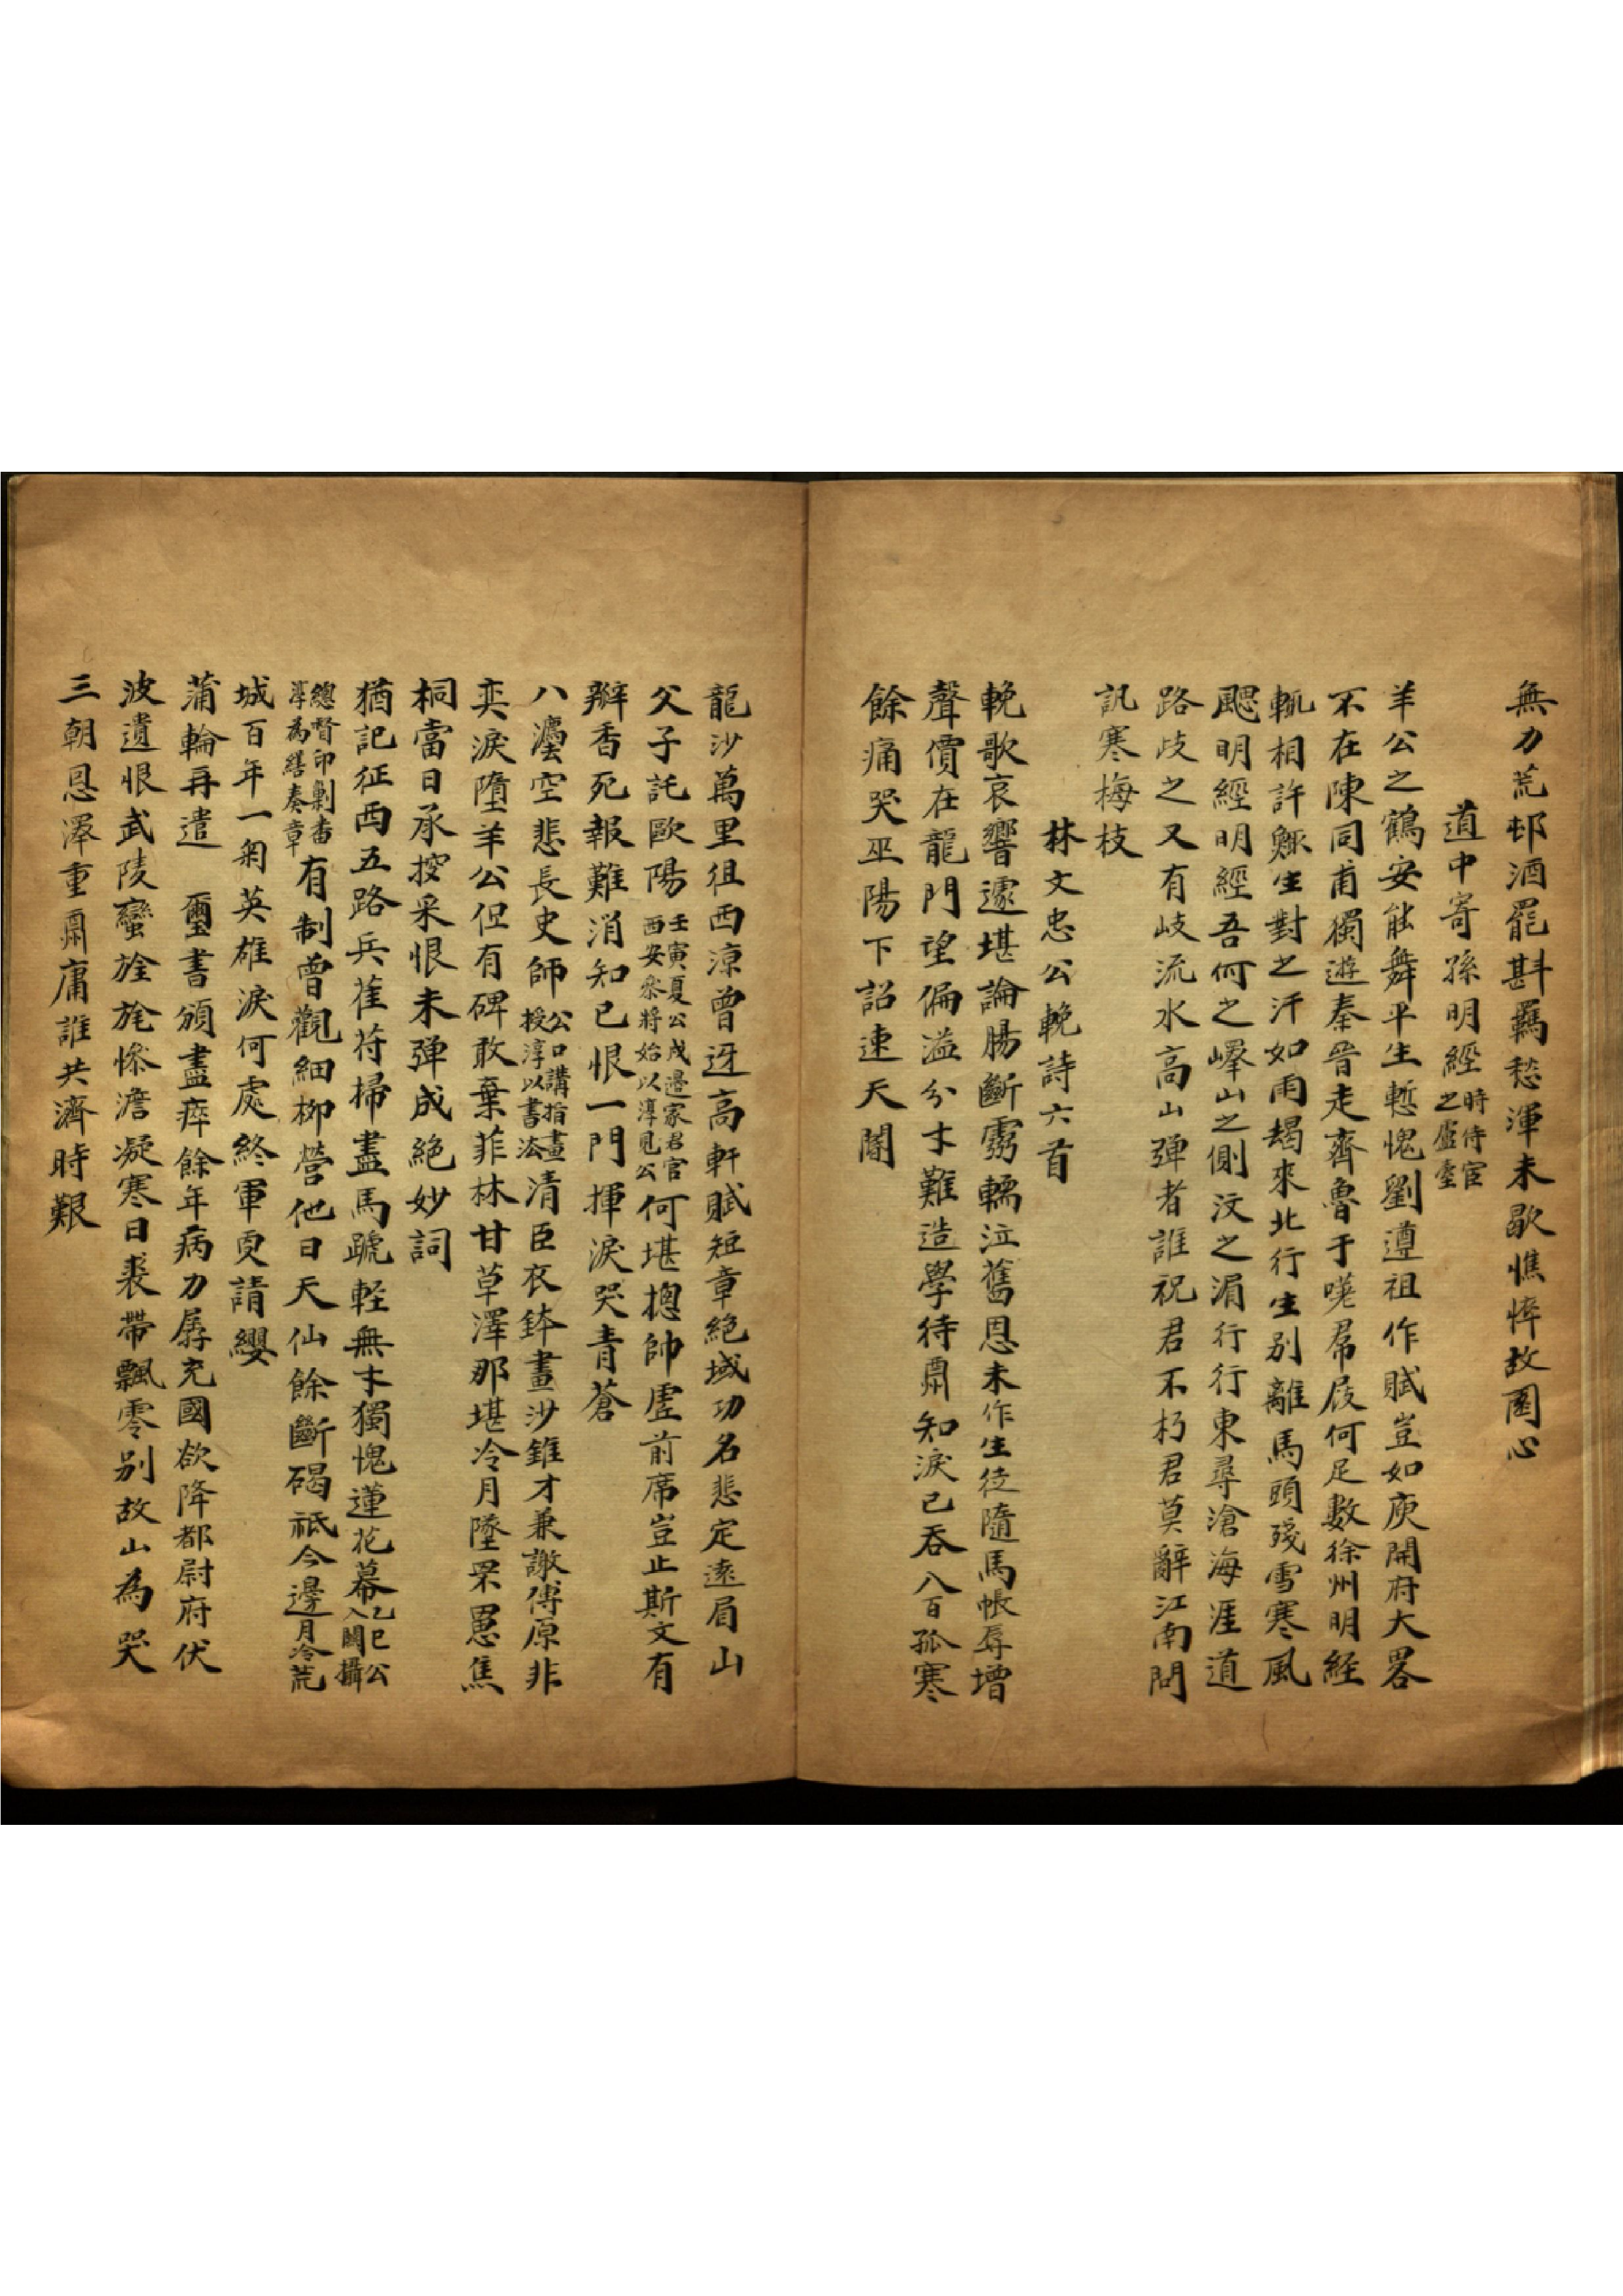 無力荒邨酒罷斟羈愁渾未歇憔悴故園心
道中寄孫明經時侍宦之盛臺
羊公之鶴安能舞平生慙愧劉遵祖作賦豈如庾開府大畧
不在陳同甫獨遊秦晉走齊魯于嗟屠殷何足數徐州明經
輒相許鯫生對之汗如雨朅來北行生别離馬頭殘雪寒風
颸明經明經吾何之嶧山之側汶之湄行行東尋滄海涯道
路歧之又有岐流水高山彈者誰祝君不朽君莫辭江南問
訊寒梅枝
林文忠公輓詩六首
輓歌哀響遽堪論腸斷靈輀泣舊恩未作生徒隨馬帳辱增
聲價在龍門望偏溢分才難造學待肅知淚已吞八百孤寒
餘痛哭巫陽下詔速天閽
龍沙萬里徂西涼曾迓高軒賦短章絕域功名悲定遠眉山
父子託歐陽壬寅夏公戍邊家君官西安參將始以淳見公何堪摠帥虛前席豈止斯文有
瓣香死報難消知已恨一門揮淚哭青蒼
八灋空悲長史師公口講指畫授淳以書法清臣衣鉢畫沙錐才兼譤傅原非
奕淚墮羊公但有碑敢棄菲林甘草澤那堪冷月墜罘罳焦
桐當日承搜采恨未彈成絕妙詞
猶記征西五路兵萑苻掃盡馬蹏輕無才獨愧蓮花幕乙巳公入關攝
總督印剿番淳為繕奏章有制曾觀細柳營他日天仙餘斷碣祗今邊月冷荒
城百年一匊英雄淚何處終軍更請纓
蒲輪再遣 璽書頒盡瘁餘年病力孱充國欲降都尉府伏
波遺恨武陵蠻旌旄慘澹凝寒日裘帶飄零别故山為哭
三朝恩澤重肅庸誰共濟時艱